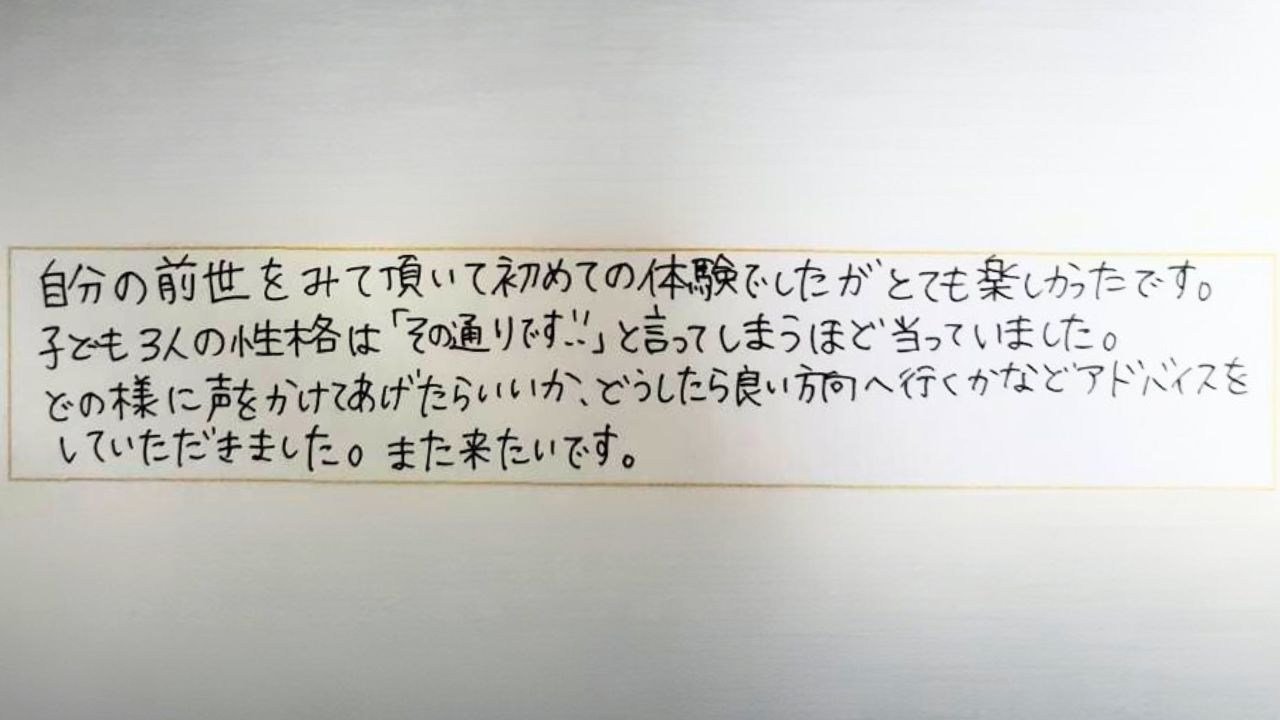 自分の前世をみて頂いて初めての体験でしたがとても楽しかったです。
子ども3人の性格は「その通りです!!」と言ってしまうほど当っていました。
どの様に声をかけてあげたらいいか、どうしたら良い方向へ行くかなどアドバイスを
していただきました。また来たいです。